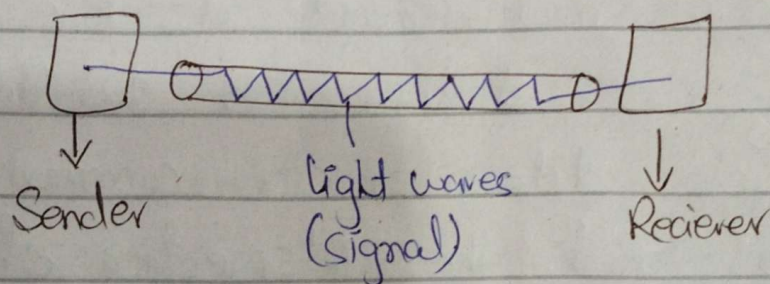 Sender
light waves
(signal)
Reciever